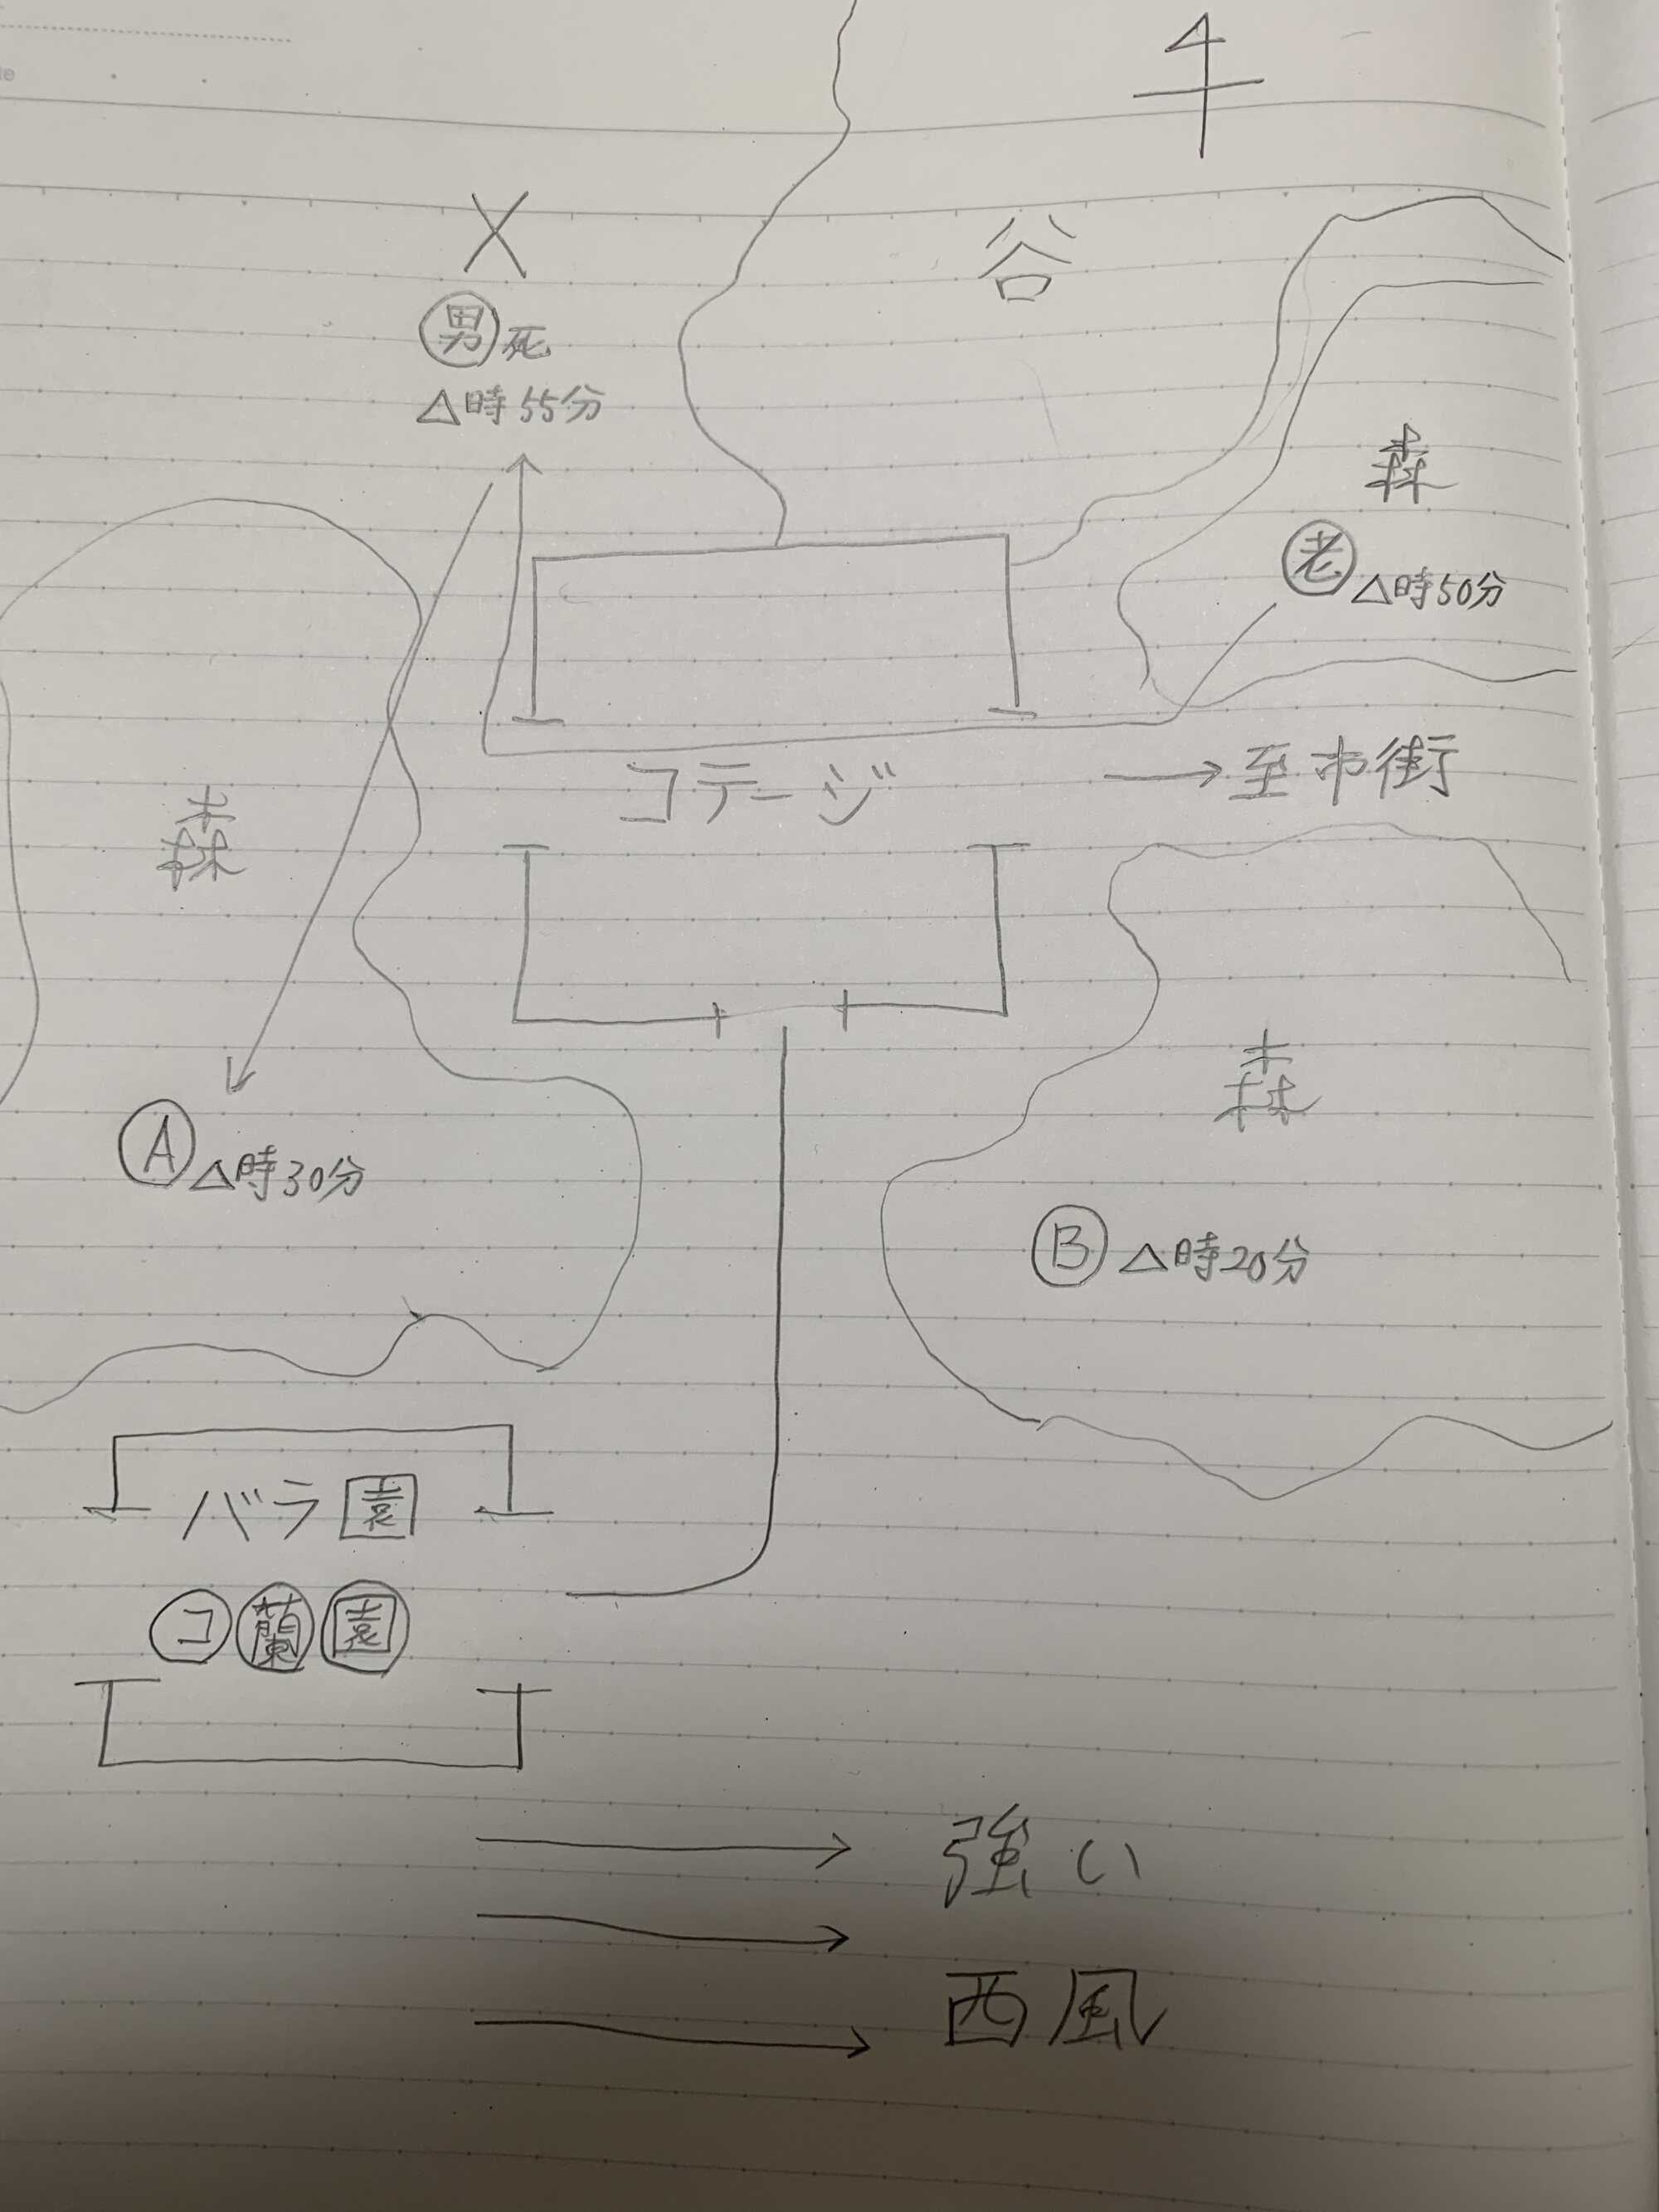 谷
男死
△時55分
森
老 △時50分
コテージ
→至市街
森
森
A △時30分
B △時20分
バラ園
コ蘭園
強い
西風